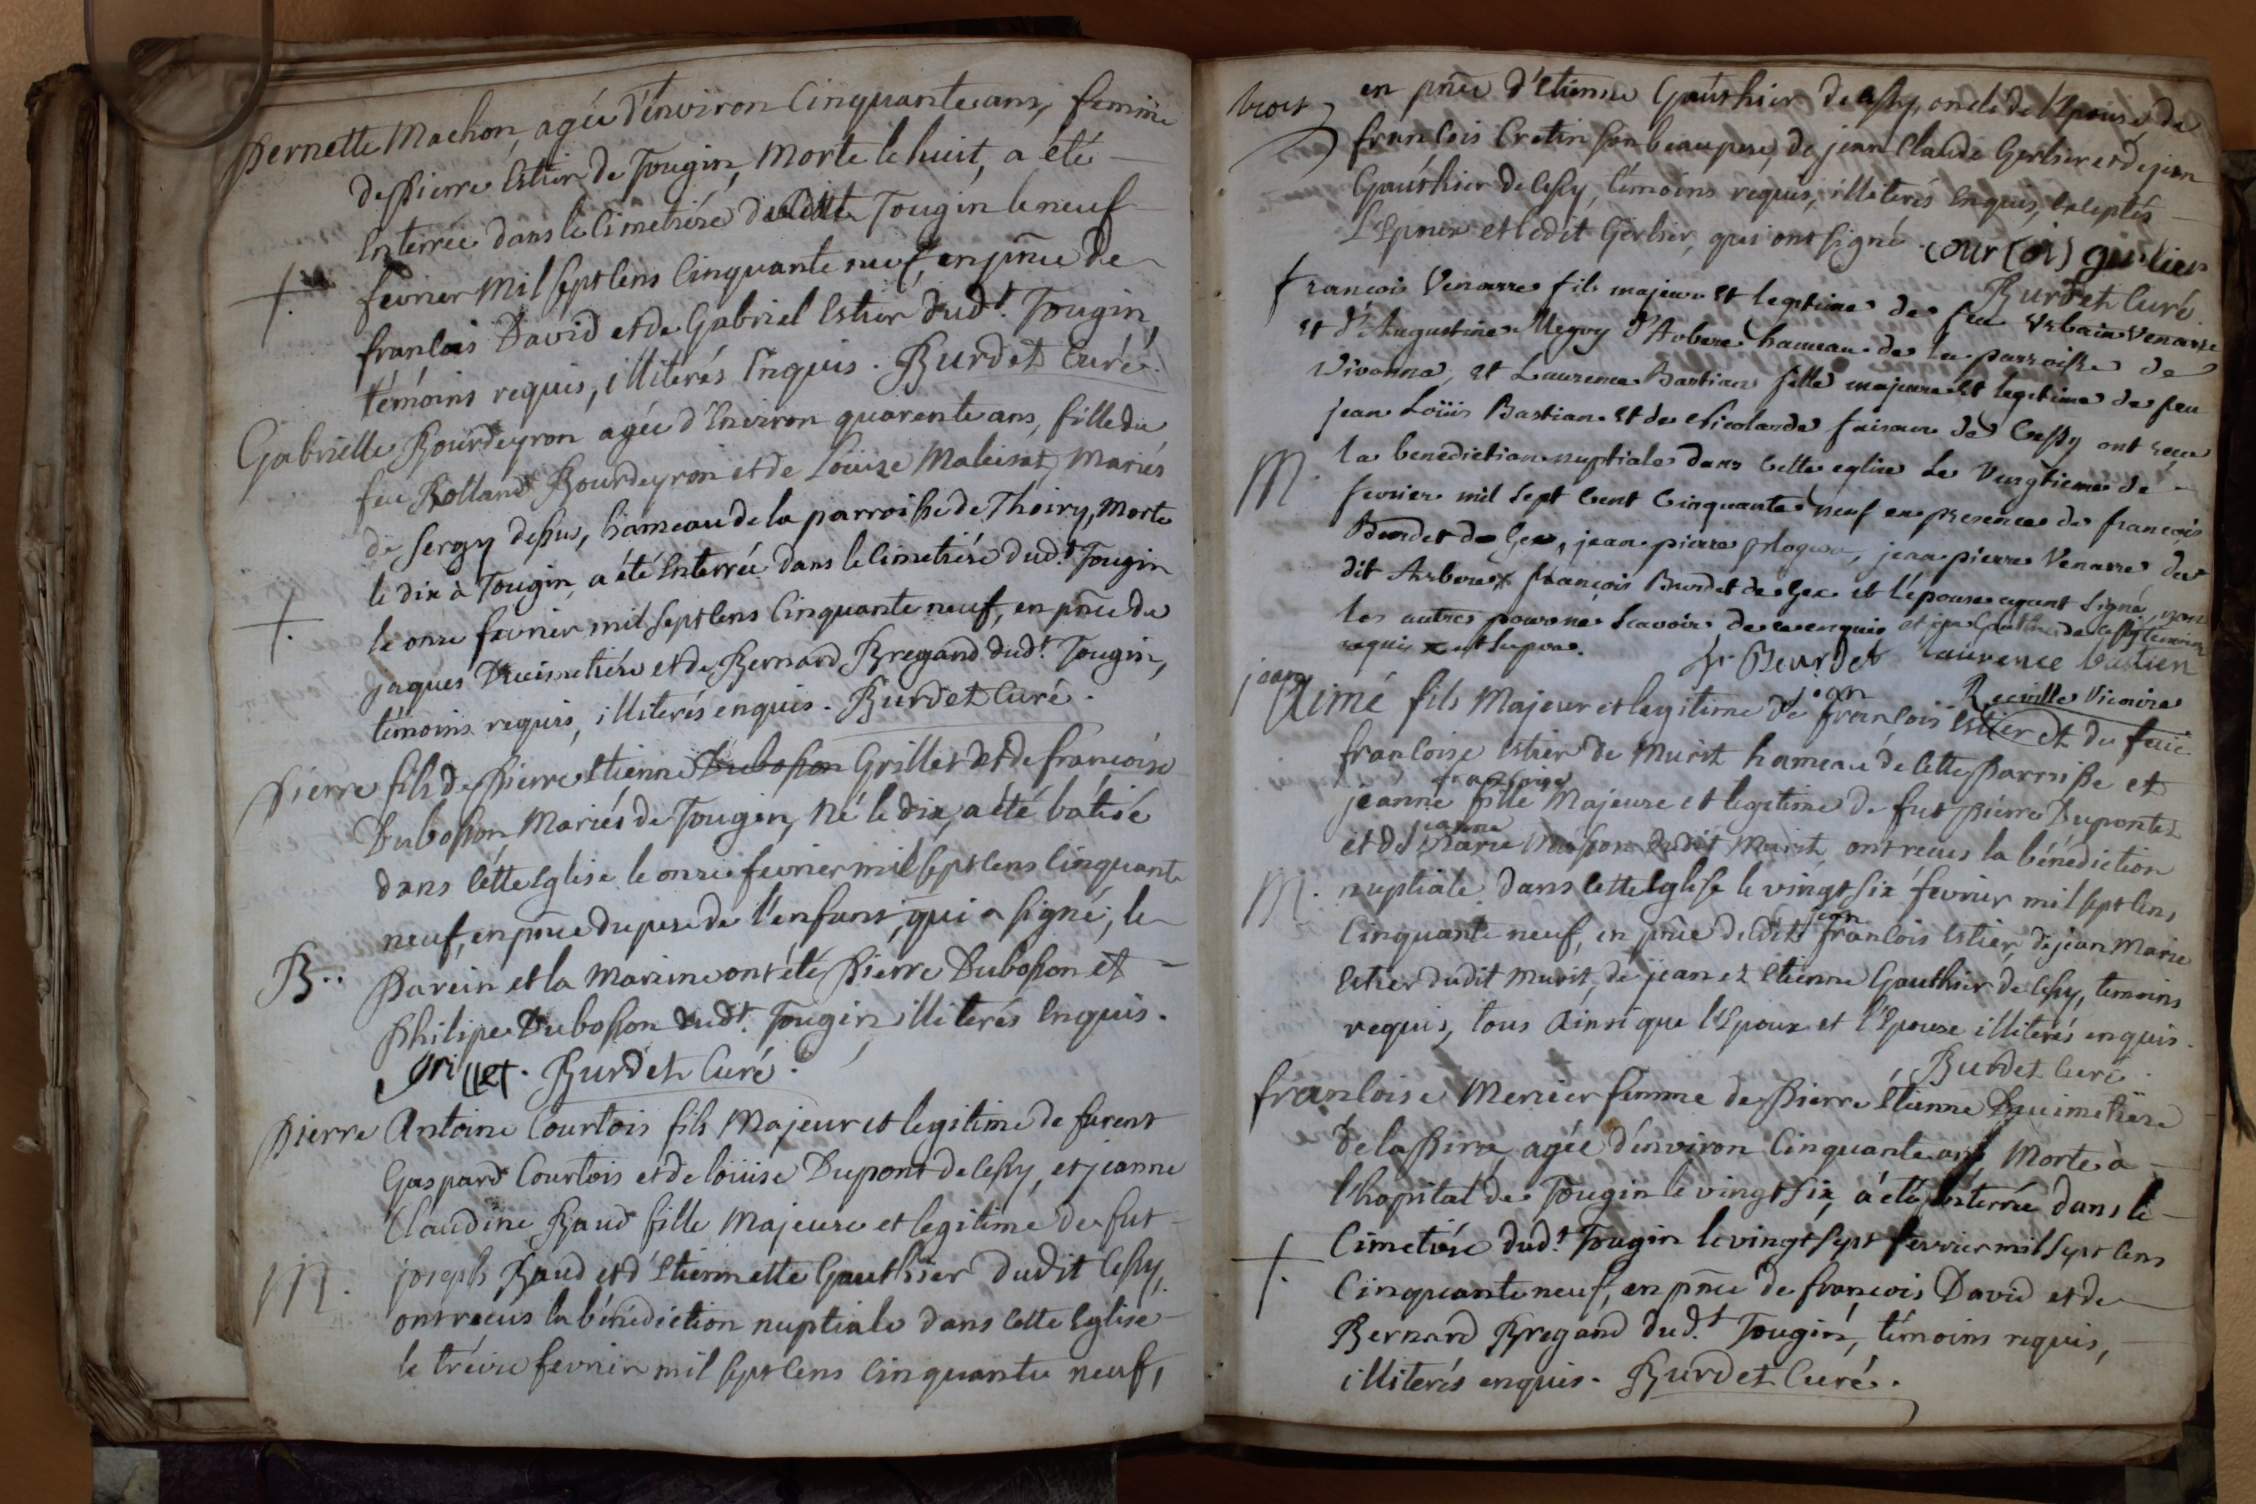 Pernette Machon, agée d'environ cinquante ans, femme
de Pierre Estier de Tougin, morte le huit, a été
enterrée dans le cimetière dudit Tougin le neuf
+ fevrier mil sept cens cinquante neuf, en pnce de
francois David et de Gabriel Estier dudt. Tougin,
témoins requis, illiterés enquis. Burdet Curé.
Gabrielle Bourdeyron agée d'environ quarente ans, fille du
feu Rolland Bourdeyron et de Loüise Maleisat, mariés
de Sergy dessus, hameau de la parroisse de Thoiry, morte
le dix à Tougin, a été enterrée dans le cimetière dudt. Tougin
+ le onze fevrier mil sept cens cinquante neuf, en pnce de
jaques Ducimetière et de Bernard Bregand dudt. Tougin,
témoins requis, illiterés enquis. Burdet Curé.
Pierre fils de Pierre Etienne Dubosson Grillet et de françoise
Dubosson, mariés de Tougin, né le dix, a été batisé
dans cette Eglise le onze fevrier mil sept cens cinquante
neuf, en pnce du pere de l'enfant, qui a signé; le
B.. parein et la mareine ont été Pierre Dubosson et
philipe Dubosson dudt. Tougin, illiterés enquis.
grillet. Burdet Curé.
Pierre Antoine Courtois fils majeur et legitime de furent
Gaspard Courtois et de loüise Dupont de Cessy, et jeanne
Claudine Baud fille majeure et legitime de fut
joseph Baud et d'Etiennette Gauthier dudit Cessy,
M. ont recus la bénédiction nuptiale dans cette Eglise
le treize fevrier mil sept cens cinquante neuf,
trois en pnce d'Etienne Gauthier de Cessy, oncle de l'Epouse, de
francois Cretin son beaupere, de jean Claude Gerlier et de jean
Gauthier de Cessy, témoins requis, illiterés enquis, exceptés
l'Epoux et ledit Gerlier, qui ont signé. courtois gerlier
Burdet Curé.
francois Venarre fils majeur et legitime de feu Urbain Venarre
et d'Augustine Megoy d'Arbere hameau de la parroisse de
Divonne, et Laurence Bastian fille majeure et legitime de feu
jean Loüis Bastian et de Nicolarde faisaux de Cessy ont reçu
M. la benediction nuptiale dans cette eglise le vingtieme de
fevrier mil sept cent cinquante neuf en presence de francois
Burdet de Gex, jean pierre, jean pierre Venarre du
dit Arbere, françois Burdet de Gex et l'épouse ayant signé, non
les autres pour ne scavoir de ce enquis et jean Gauthier de Cessy temoin
requis et supra. fr Beurdet laurence bastien
Reville Vicaire
jean
Aimé fils majeur et legitime de jean francois Estier et de feüe
francoise Estier de Murit hameau de cette Parroisse et
francoise
jeanne fille majeure et legitime de fut Pierre Dupontet
jeanne
et de Marie Masson dudit Murit ont recus la bénédiction
M. nuptiale dans cette Eglise le vingt six fevrier mil sept cens
jean
cinquante neuf, en pnce dudit francois Estier, de jean Marie
Estier dudit Murit, de jean et Etienne Gauthier de Cessy, temoins
requis, tous ainsi que l'Epoux et l'Epouse illiterés enquis.
Burdet Curé
francoise Mercier femme de Pierre Etienne Ducimetière
de la Pirra, agée d'environ cinquante ans, morte à
l'hopital de Tougin le vingt six, a été enterrée dans le
+ cimetière dudt. Tougin le vingt sept fevrier mil sept cens
cinquante neuf, en pnce de francois David et de
Bernard Bregand dud.t Tougin, témoins requis,
illiterés enquis. Burdet Curé.